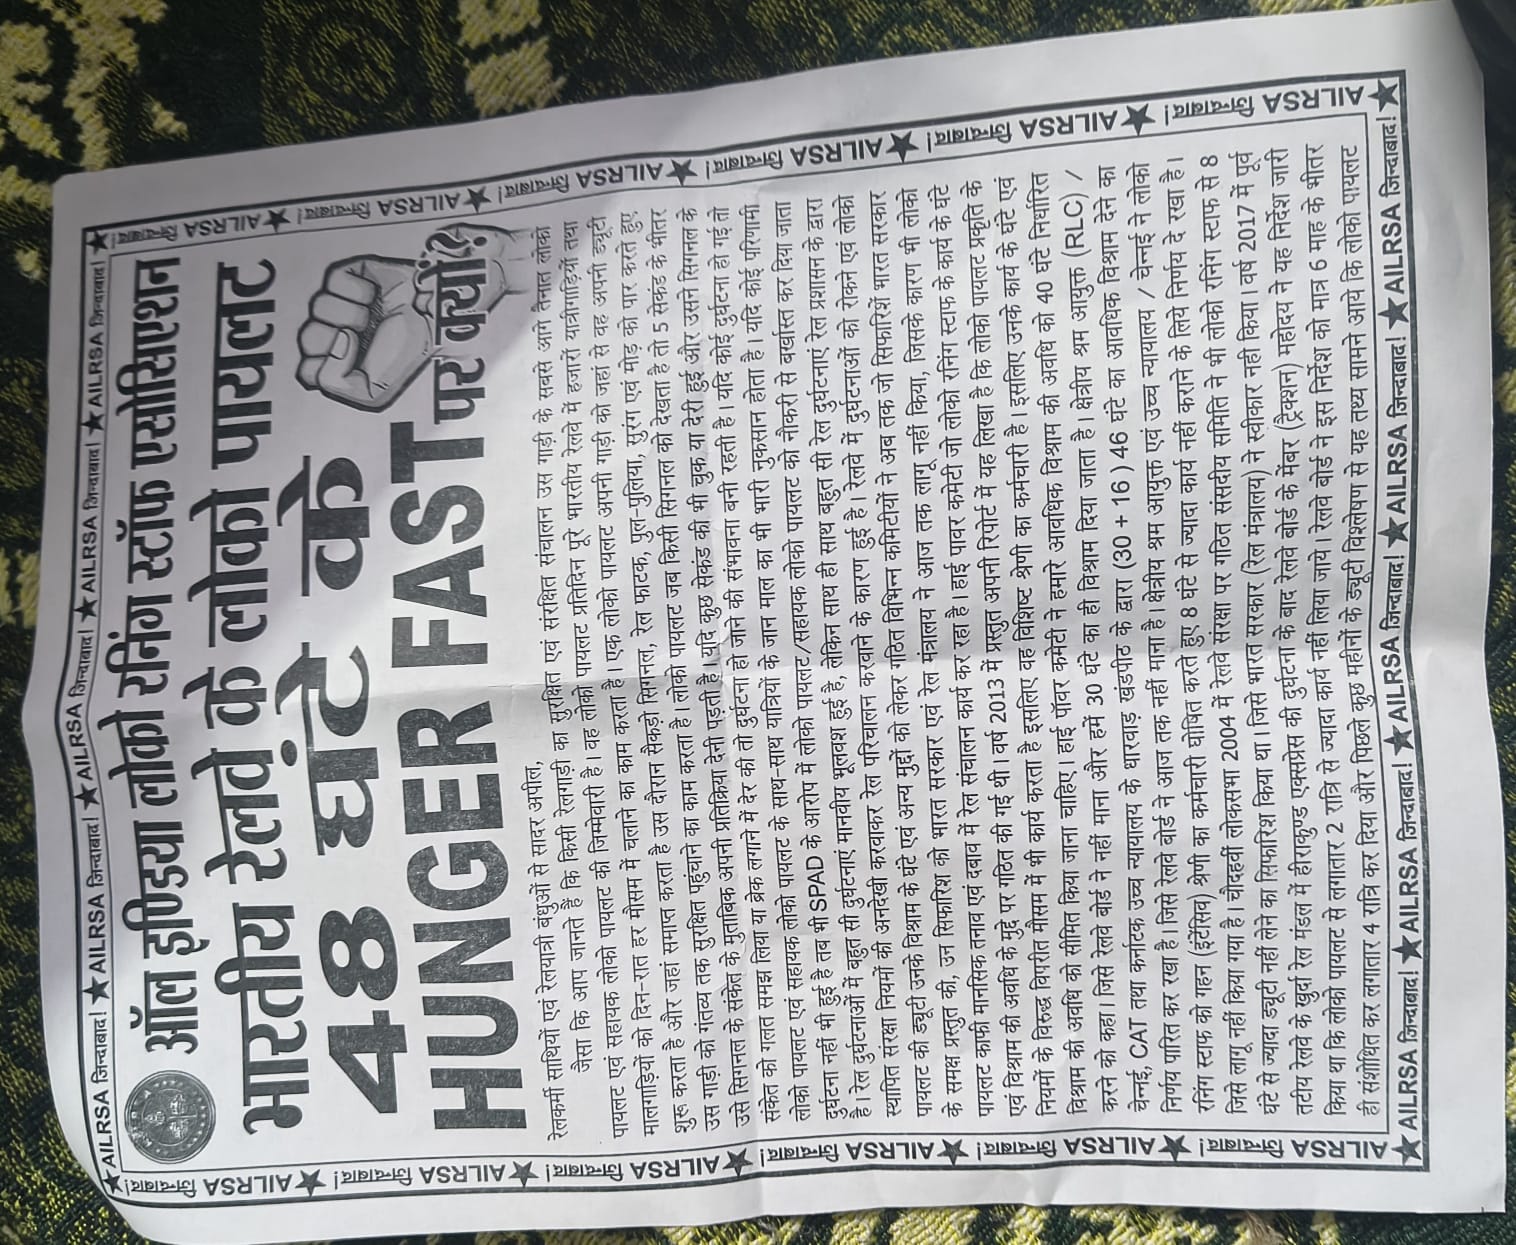 ★ AILRSA जिन्दाबाद! ★ AILRSA जिन्दाबाद! ★ AILRSA जिन्दाबाद! ★ AILRSA जिन्दाबाद! ★ AILRSA जिन्दाबाद! ★
ऑल इण्डिया लोको रनिंग स्टॉफ एसोसिएशन
भारतीय रेलवे के लोको पायलट
48 घंटे के
HUNGER FAST पर क्यों?
रेलकर्मी साथियों एवं रेलयात्री बंधुओं से सादर अपील,
जैसा कि आप जानते हैं कि किसी रेलगाड़ी का सुरक्षित एवं संरक्षित संचालन उस गाड़ी के सबसे आगे तैनात लोको
पायलट एवं सहायक लोको पायलट की जिम्मेवारी है। वह लोको पायलट प्रतिदिन पूरे भारतीय रेलवे में हजारों यात्रीगाड़ियों तथा
मालगाड़ियों को दिन-रात हर मौसम में चलाने का काम करता है। एक लोको पायलट अपनी गाड़ी को जहां से वह अपनी ड्यूटी
शुरू करता है और जहां समाप्त करता है उस दौरान सैकड़ो सिगनल, रेल फाटक, पुल-पुलिया, सुरंग एवं मोड़ को पार करते हुए
उस गाड़ी को गंतव्य तक सुरक्षित पहुंचाने का काम करता है। लोको पायलट जब किसी सिगनल को देखता है तो 5 सेकंड के भीतर
उसे सिगनल के संकेत के मुताबिक अपनी प्रतिक्रिया देनी पड़ती है। यदि कुछ सेकंड की भी चूक या देरी हुई और उसने सिगनल के
संकेत को गलत समझ लिया या ब्रेक लगाने में देर की तो दुर्घटना हो जाने की संभावना बनी रहती है। यदि कोई दुर्घटना हो गई तो
लोको पायलट एवं सहायक लोको पायलट के साथ-साथ यात्रियों के जान माल का भी भारी नुकसान होता है। यदि कोई परिणामी
दुर्घटना नहीं भी हुई है तब भी SPAD के आरोप में लोको पायलट/सहायक लोको पायलट को नौकरी से बर्खास्त कर दिया जाता
है। रेल दुर्घटनाओं में बहुत सी दुर्घटनाएं मानवीय भूलवश हुई है, लेकिन साथ ही साथ बहुत सी रेल दुर्घटनाएं रेल प्रशासन के द्वारा
स्थापित संरक्षा नियमों की अनदेखी करवाकर रेल परिचालन करवाने के कारण हुई है। रेलवे में दुर्घटनाओं को रोकने एवं लोको
पायलट की ड्यूटी उनके विश्राम के घंटे एवं अन्य मुद्दों को लेकर गठित विभिन्न कमिटीयों ने अब तक जो सिफारिशें भारत सरकार
के समक्ष प्रस्तुत की, उन सिफारिश को भारत सरकार एवं रेल मंत्रालय ने आज तक लागू नहीं किया, जिसके कारण भी लोको
पायलट काफी मानसिक तनाव एवं दबाव में रेल संचालन कार्य कर रहा है। हाई पावर कमेटी जो लोको रनिंग स्टाफ के कार्य के घंटे
एवं विश्राम की अवधि के मुद्दे पर गठित की गई थी। वर्ष 2013 में प्रस्तुत अपनी रिपोर्ट में यह लिखा है कि लोको पायलट प्रकृति के
नियमों के विरुद्ध विपरीत मौसम में भी कार्य करता है इसलिए वह विशिष्ट श्रेणी का कर्मचारी है। इसलिए उनके कार्य के घंटे एवं
विश्राम की अवधि को सीमित किया जाना चाहिए। हाई पॉवर कमेटी ने हमारे आवधिक विश्राम की अवधि को 40 घंटे निर्धारित
करने को कहा। जिसे रेलवे बोर्ड ने नहीं माना और हमें 30 घंटे का ही विश्राम दिया जाता है। क्षेत्रीय श्रम आयुक्त (RLC) /
चेन्नई, CAT तथा कर्नाटक उच्च न्यायालय के धारवाड़ खंडपीठ के द्वारा (30 + 16 ) 46 घंटे का आवधिक विश्राम देने का
निर्णय पारित कर रखा है। जिसे रेलवे बोर्ड ने आज तक नहीं माना है। क्षेत्रीय श्रम आयुक्त एवं उच्च न्यायालय / चेन्नई ने लोको
रनिंग स्टाफ को गहन (इंटेंसिव) श्रेणी का कर्मचारी घोषित करते हुए 8 घंटे से ज्यादा कार्य नहीं कराने के लिये निर्णय दे रखा है।
जिसे लागू नहीं किया गया है। चौदहवीं लोकसभा 2004 में रेलवे संरक्षा पर गठित संसदीय समिति ने भी लोको रनिंग स्टाफ से 8
घंटे से ज्यादा ड्यूटी नहीं लेने का सिफारिश किया था। जिसे भारत सरकार (रेल मंत्रालय) ने स्वीकार नहीं किया। वर्ष 2017 में पूर्व
तटीय रेलवे के खुर्दा रेल मंडल में हीराकुण्ड एक्सप्रेस की दुर्घटना के बाद रेलवे बोर्ड के मेंबर (ट्रैक्शन) महोदय ने यह निर्देश जारी
किया था कि लोको पायलट से लगातार 2 रात्रि से ज्यादा कार्य नहीं लिया जाये। रेलवे बोर्ड ने इस निर्देश को मात्र 6 माह के भीतर
ही संशोधित कर लगातार 4 रात्रि कर दिया और पिछले कुछ महीनों के ड्यूटी विश्लेषण से यह तथ्य सामने आये कि लोको पायलट
★ AILRSA जिन्दाबाद! ★ AILRSA जिन्दाबाद! ★ AILRSA जिन्दाबाद! ★ AILRSA जिन्दाबाद! ★ AILRSA जिन्दाबाद! ★
AILRSA जिन्दाबाद! ★ AILRSA जिन्दाबाद! ★ AILRSA जिन्दाबाद! ★ AILRSA जिन्दाबाद! ★ AILRSA जिन्दाबाद! ★ AILRSA जिन्दाबाद! ★
AILRSA जिन्दाबाद! ★ AILRSA जिन्दाबाद! ★ AILRSA जिन्दाबाद! ★ AILRSA जिन्दाबाद! ★ AILRSA जिन्दाबाद! ★ AILRSA जिन्दाबाद! ★